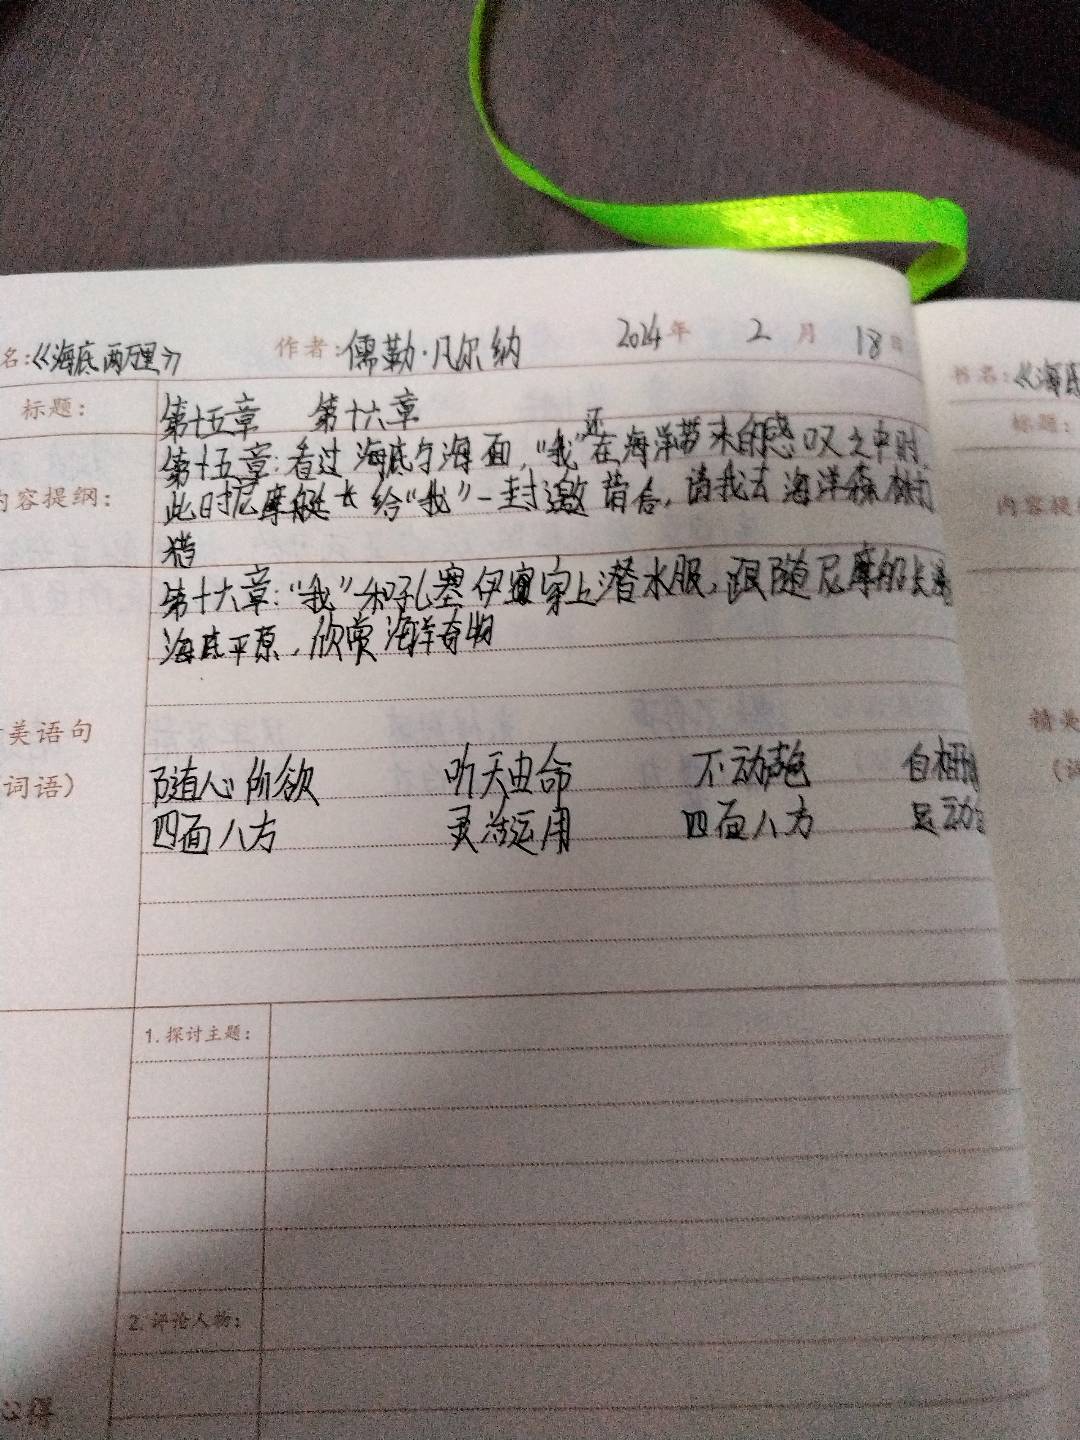 名:《海底两万里》 作者:儒勒·凡尔纳 2024年 2月 18日
标题: 第十五章 第十六章
第十五章:看过海底与海面,“我”还在海洋带来的感叹之中时,
内容提纲: 此时尼摩艇长给“我”一封邀请函,请我去海洋森林打
猎
第十六章:“我”和孔塞伊蜜穿上潜水服,跟随尼摩船长
海底平原,欣赏海洋奇物
美语句
词语)
随心所欲 听天由命 不动声色 自相
四面八方 灵活运用 四面八方 足动
1.探讨主题:
2.评论人物:
心得
书名:《海底
标题:
内容提
精美
(词